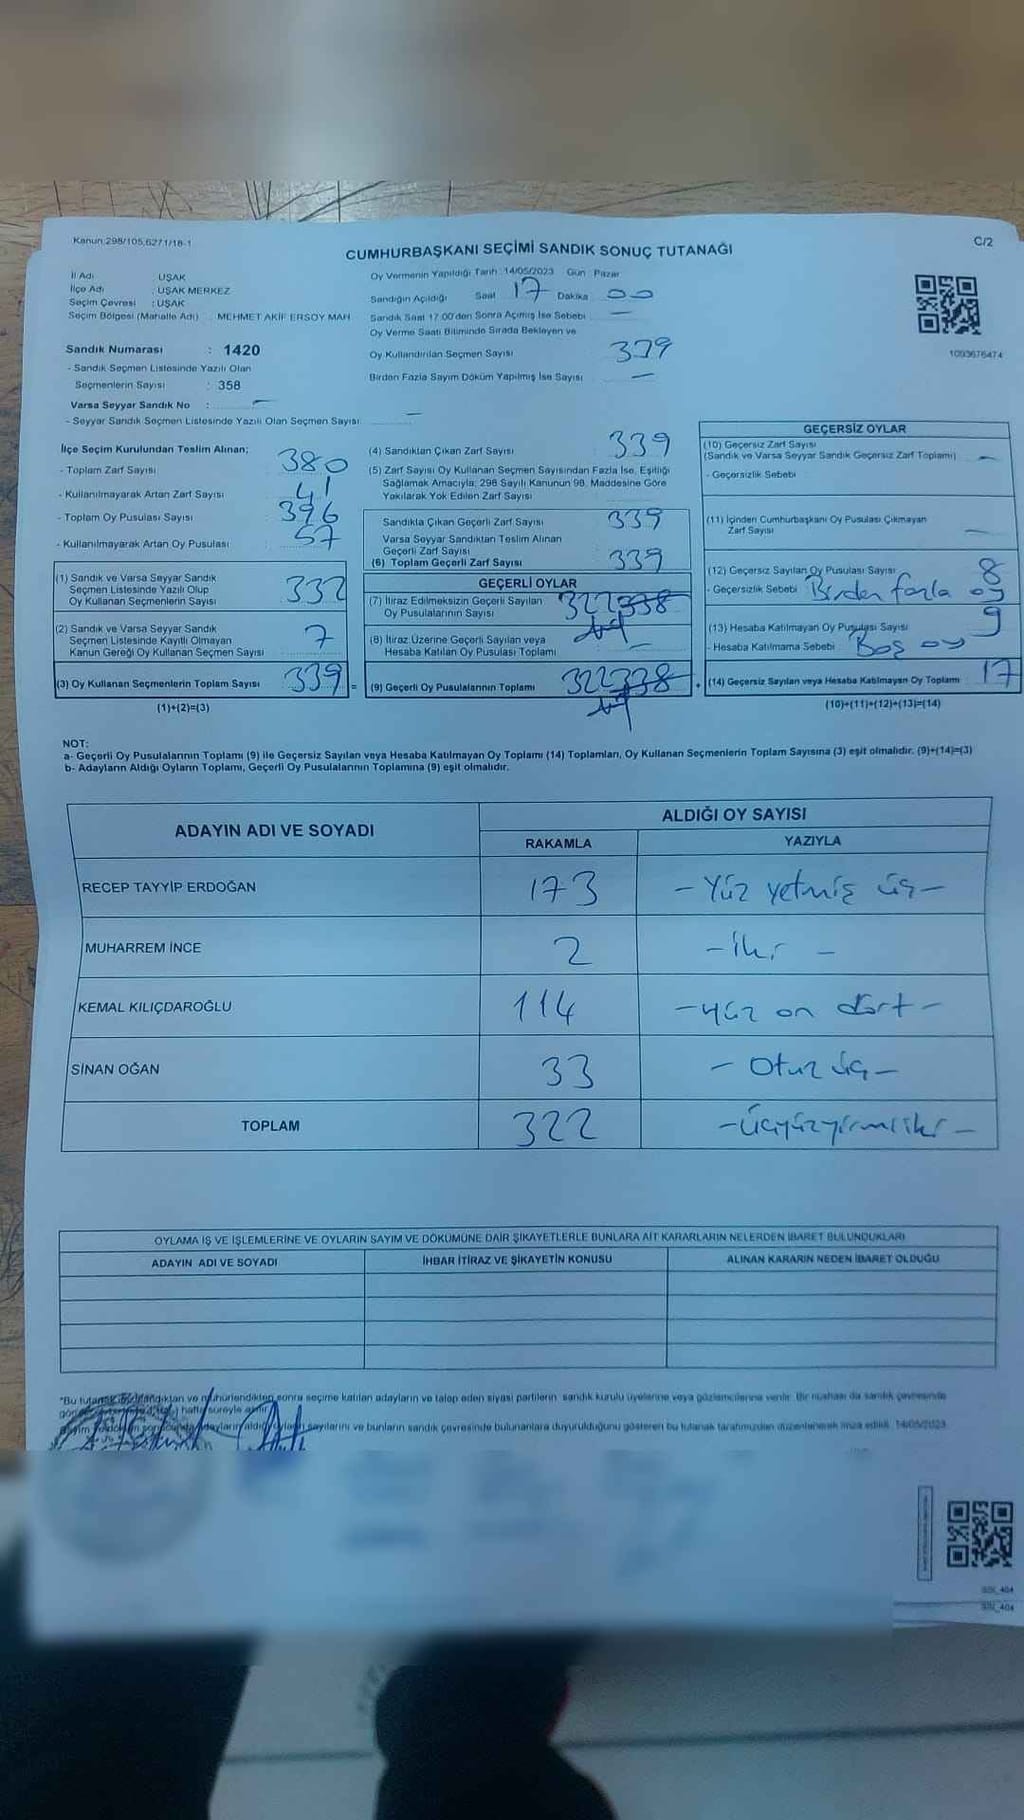 Kanun.298/105,6271/18-1
C/2
CUMHURBAŞKANI SEÇİMİ SANDIK SONUÇ TUTANAĞI
İl Adı : UŞAK
İlçe Adı : UŞAK MERKEZ
Seçim Çevresi : UŞAK
Seçim Bölgesi (Mahalle Adı) : MEHMET AKİF ERSOY MAH
Oy Vermenin Yapıldığı Tarih: 14/05/2023 Gün: Pazar
Sandığın Açıldığı Saat 17 Dakika 00
Sandık Saat 17:00'den Sonra Açımış İse Sebebi —
Oy Verme Saati Bitiminde Sırada Bekleyen ve
Oy Kullandırılan Seçmen Sayısı 339
Birden Fazla Sayım Döküm Yapılmış İse Sayısı —
1093676474
Sandık Numarası : 1420
- Sandık Seçmen Listesinde Yazılı Olan
Seçmenlerin Sayısı : 358
Varsa Seyyar Sandık No : —
- Seyyar Sandık Seçmen Listesinde Yazılı Olan Seçmen Sayısı: —
İlçe Seçim Kurulundan Teslim Alınan;
- Toplam Zarf Sayısı 380
- Kullanılmayarak Artan Zarf Sayısı 41
- Toplam Oy Pusulası Sayısı 396
- Kullanılmayarak Artan Oy Pusulası 57
(1) Sandık ve Varsa Seyyar Sandık
Seçmen Listesinde Yazılı Olup
Oy Kullanan Seçmenlerin Sayısı 332
(2) Sandık ve Varsa Seyyar Sandık
Seçmen Listesinde Kayıtlı Olmayan
Kanun Gereği Oy Kullanan Seçmen Sayısı 7
(3) Oy Kullanan Seçmenlerin Toplam Sayısı 339 =
(1)+(2)=(3)
(4) Sandıktan Çıkan Zarf Sayısı 339
(5) Zarf Sayısı Oy Kullanan Seçmen Sayısından Fazla İse, Eşitliği
Sağlamak Amacıyla; 298 Sayılı Kanunun 98. Maddesine Göre
Yakılarak Yok Edilen Zarf Sayısı
Sandıkla Çıkan Geçerli Zarf Sayısı 339
Varsa Seyyar Sandıktan Teslim Alınan
Geçerli Zarf Sayısı
(6) Toplam Geçerli Zarf Sayısı 339
GEÇERLİ OYLAR
(7) İtiraz Edilmeksizin Geçerli Sayılan
Oy Pusulalarının Sayısı 322 338
(8) İtiraz Üzerine Geçerli Sayılan veya
Hesaba Katılan Oy Pusulası Toplamı —
(9) Geçerli Oy Pusulalarının Toplamı 322 338 +
GEÇERSİZ OYLAR
(10) Geçersiz Zarf Sayısı
(Sandık ve Varsa Seyyar Sandık Geçersiz Zarf Toplamı) —
- Geçersizlik Sebebi
(11) İçinden Cumhurbaşkanı Oy Pusulası Çıkmayan
Zarf Sayısı —
(12) Geçersiz Sayılan Oy Pusulası Sayısı 8
- Geçersizlik Sebebi Birden fazla oy
(13) Hesaba Katılmayan Oy Pusulası Sayısı 9
- Hesaba Katılmama Sebebi Boş oy
(14) Geçersiz Sayılan veya Hesaba Katılmayan Oy Toplamı 17
(10)+(11)+(12)+(13)=(14)
NOT:
a- Geçerli Oy Pusulalarının Toplamı (9) ile Geçersiz Sayılan veya Hesaba Katılmayan Oy Toplamı (14) Toplamları, Oy Kullanan Seçmenlerin Toplam Sayısına (3) eşit olmalıdır. (9)+(14)=(3)
b- Adayların Aldığı Oyların Toplamı, Geçerli Oy Pusulalarının Toplamına (9) eşit olmalıdır.
ADAYIN ADI VE SOYADI
ALDIĞI OY SAYISI
RAKAMLA YAZIYLA
RECEP TAYYİP ERDOĞAN 173 – Yüz yetmiş üç –
MUHARREM İNCE 2 – iki –
KEMAL KILIÇDAROĞLU 114 – yüz on dört –
SİNAN OĞAN 33 – Otuz üç –
TOPLAM 322 – Üçyüzyirmiiki –
OYLAMA İŞ VE İŞLEMLERİNE VE OYLARIN SAYIM VE DÖKÜMÜNE DAİR ŞİKAYETLERLE BUNLARA AİT KARARLARIN NELERDEN İBARET BULUNDUKLARI
ADAYIN ADI VE SOYADI İHBAR İTİRAZ VE ŞİKAYETİN KONUSU ALINAN KARARIN NEDEN İBARET OLDUĞU
"Bu ve mühürlendikten sonra seçime katılan adayların ve talep eden siyasi partilerin sandık kurulu üyelerine veya gözlemcilerine verilir. Bir nüshası da sandık çevresinde
hafta süreyle
sayılarını ve bunların sandık çevresinde bulunanlara duyurulduğunu gösteren bu tutanak tarafımızdan düzenlenerek imza edildi. 14/05/2023